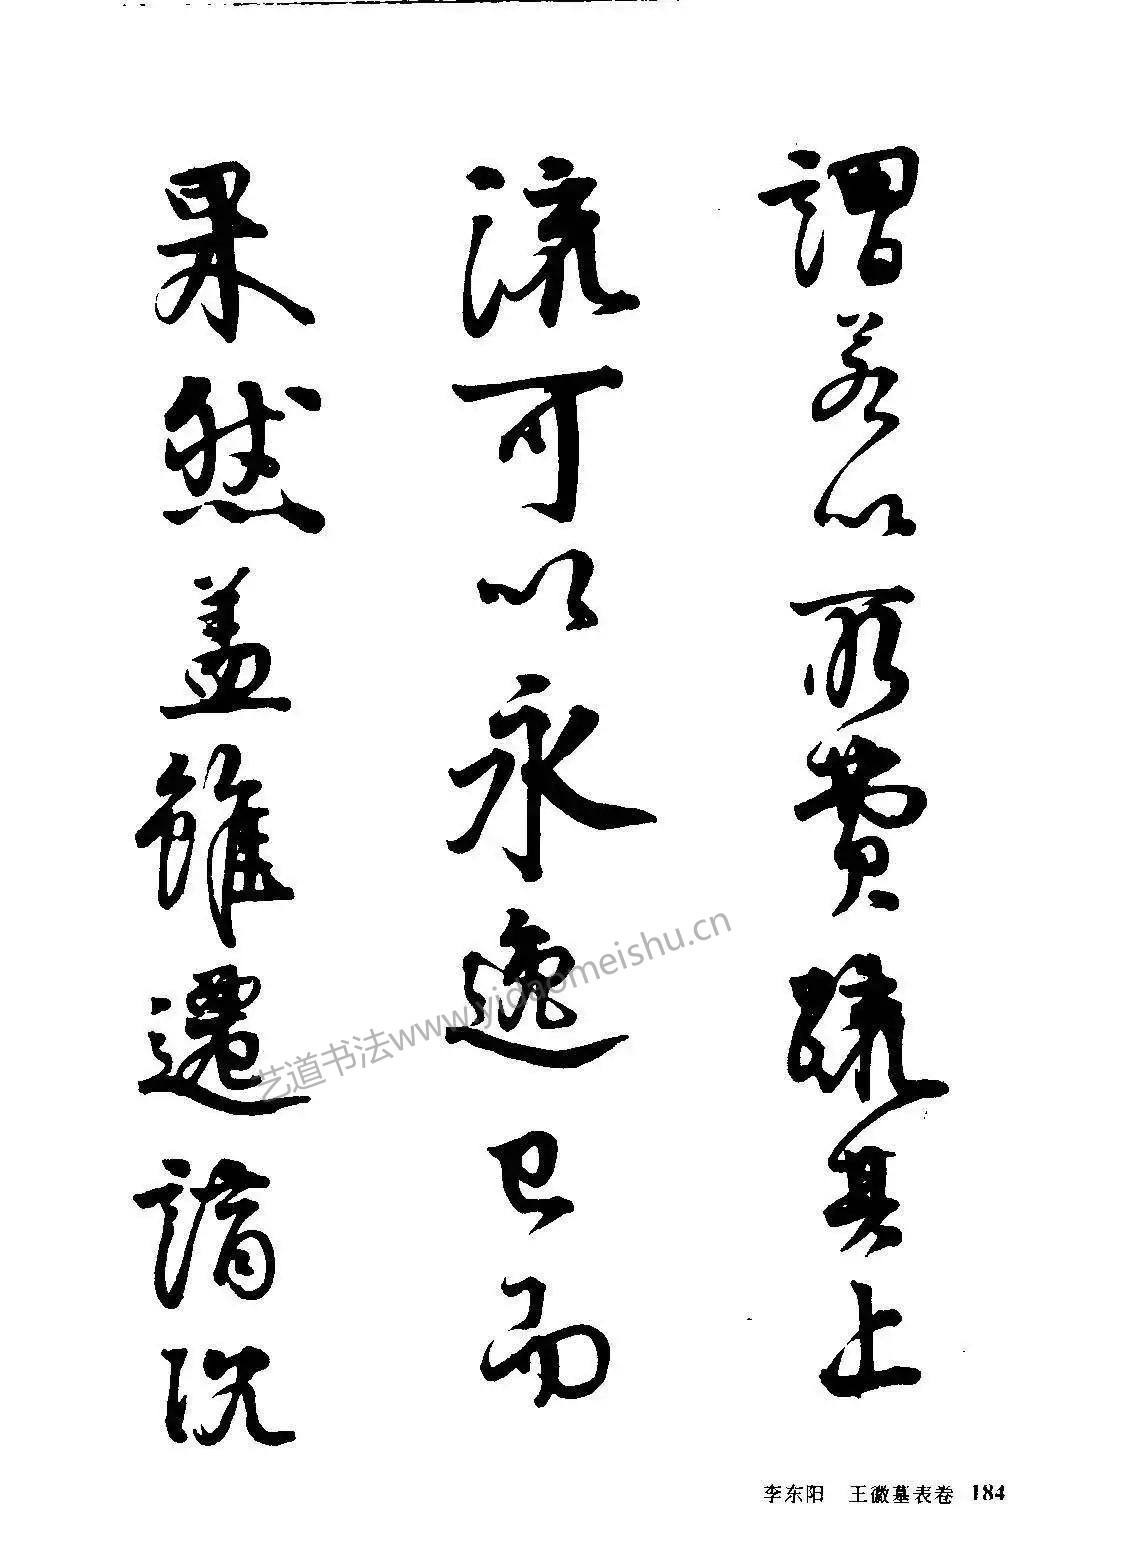 謂若以所費疏其上
流可以永逸已而
果然盖雖遷謫沉
艺道书法www.yidaomeishu.cn
李东阳 王徽墓表卷 184